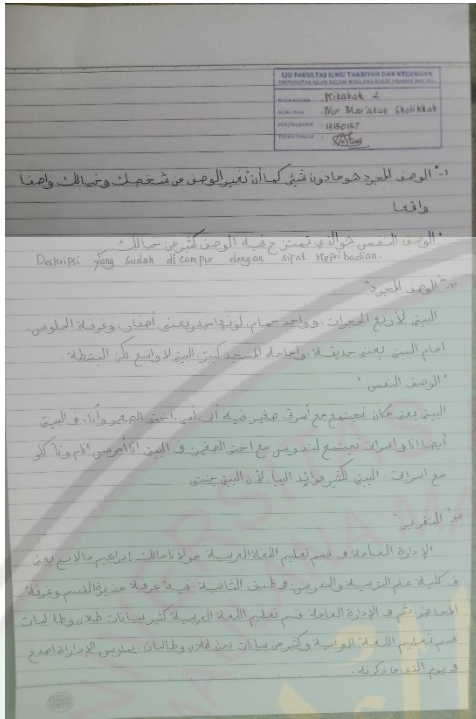 UJU FAKULTAS ILMU TARBIYAH DAN KEGURUAN
UNIVERSITAS ISLAM NEGERI MAULANA MALIK IBRAHIM MALANG
Kitabah 2
Nur Mar'atus Sholikhah
13150157
١- "الوصف المجرد هو مادون شيئ كما أن تغير الوصف من شخصك وخيالك واصفا
واقعا
"الوصف النفس هو الذي تمتزج فيه الوصف كثير من خيالك
Deskripsi yang sudah dicampur dengan sifat kepribadian.
٢- "الوصف المجرد"
البيتي لأربع الحجرات، وواحد حمام، لونه احد يعني أصفار، وغرفة الجلوس،
امام البيتي يعني حديقة، وامامه المسجد كبير، البيتي لا واسع لكن البسطة.
"الوصف النفس"
البيتي يعني مكان لنجتمع مع أسرتي صغير فيه أبي، أمي، اختي الصغير وأنا، في البيتي
أيضا انا واسرتي نجتمع لندرس مع اختي الصغير، في البيتي انا أدرس انام وأكلو
مع اسرتي. البيتي لكثير فوائد لأن البيتي جنتي.
٣- "التقرير"
الإدارة العامة في قسم تعليم اللغة العربية مولانا مالك إبراهيم مالانج يعني
في كلية علم التربية والتدريس في طبق الثانية. فيه غرفة مديرة القسم وغرفة
المحاضر. ثم في الإدارة العامة قسم تعليم اللغة العربية كثير بيانات طلاب وطالبات
قسم تعليم اللغة العربية وكثير من بيانات بحث طلاب وطالبات.
في يوم